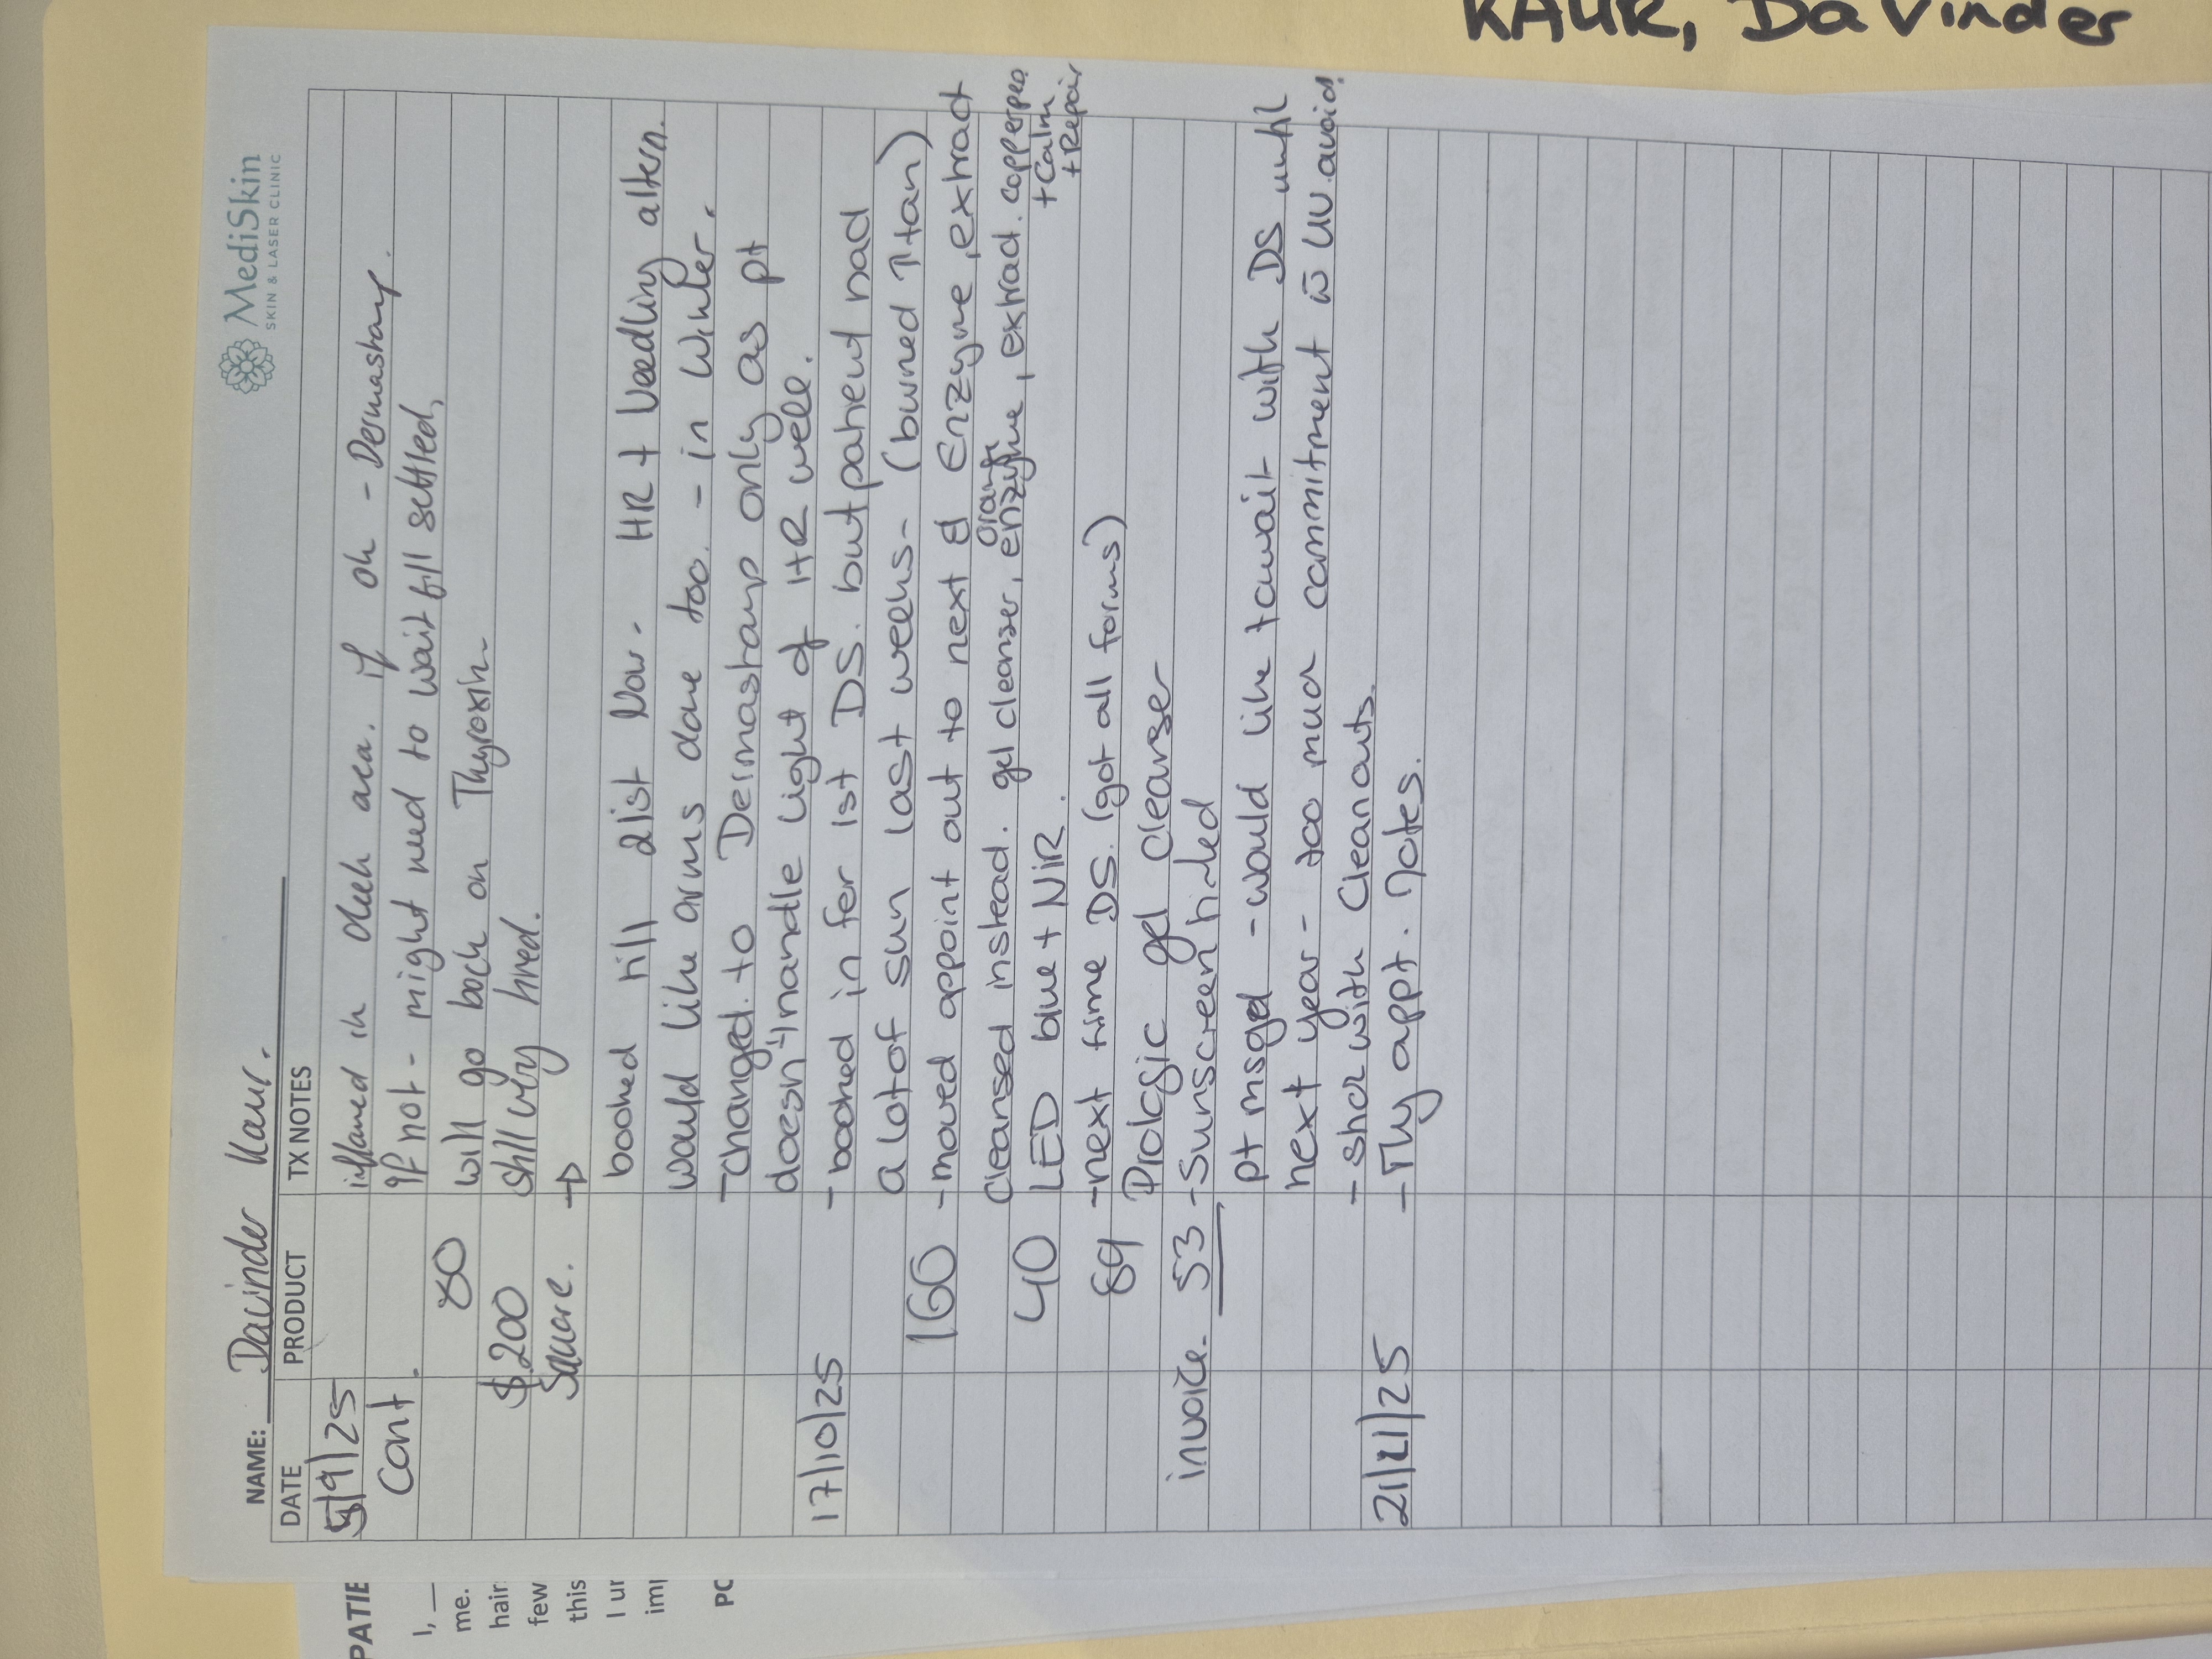 KAUR, Davinder
MediSkin
SKIN & LASER CLINIC
NAME: Davinder Kaur.
DATE PRODUCT TX NOTES
5/9/25 inflamed in area. if ok - Dermastamp.
Cont. If not - might need to wait till settled,
80 will go back on Thyroxin
$200 still very tired.
Square. →
booked till 21st Nov. HR + Needling altern.
would like arms done too. - in Winter.
- changed to Dermastamp only as pt
doesn't handle Light of HR well.
17/10/25 - booked in for 1st DS. but patient had
a lot of sun last weeks - (burned ↑ tan)
160 - moved appoint out to next & Enzyme, extract
Cleansed instead. gel cleanser, orange enzyme, extract. copperpep. + Calm + Repair
40 LED blue + NIR.
89 - next time DS. (got all forms)
Prologic gel Cleanser
invoice. 53 - Sunscreen tinted
pt msged - would like to wait with DS until
next year - too much commitment c̄ UV avoid!
- start with Clean outs.
21/11/25 - Thy appt. notes.
PATIE
I, __
me.
hair
few
this
I ur
imp
PC